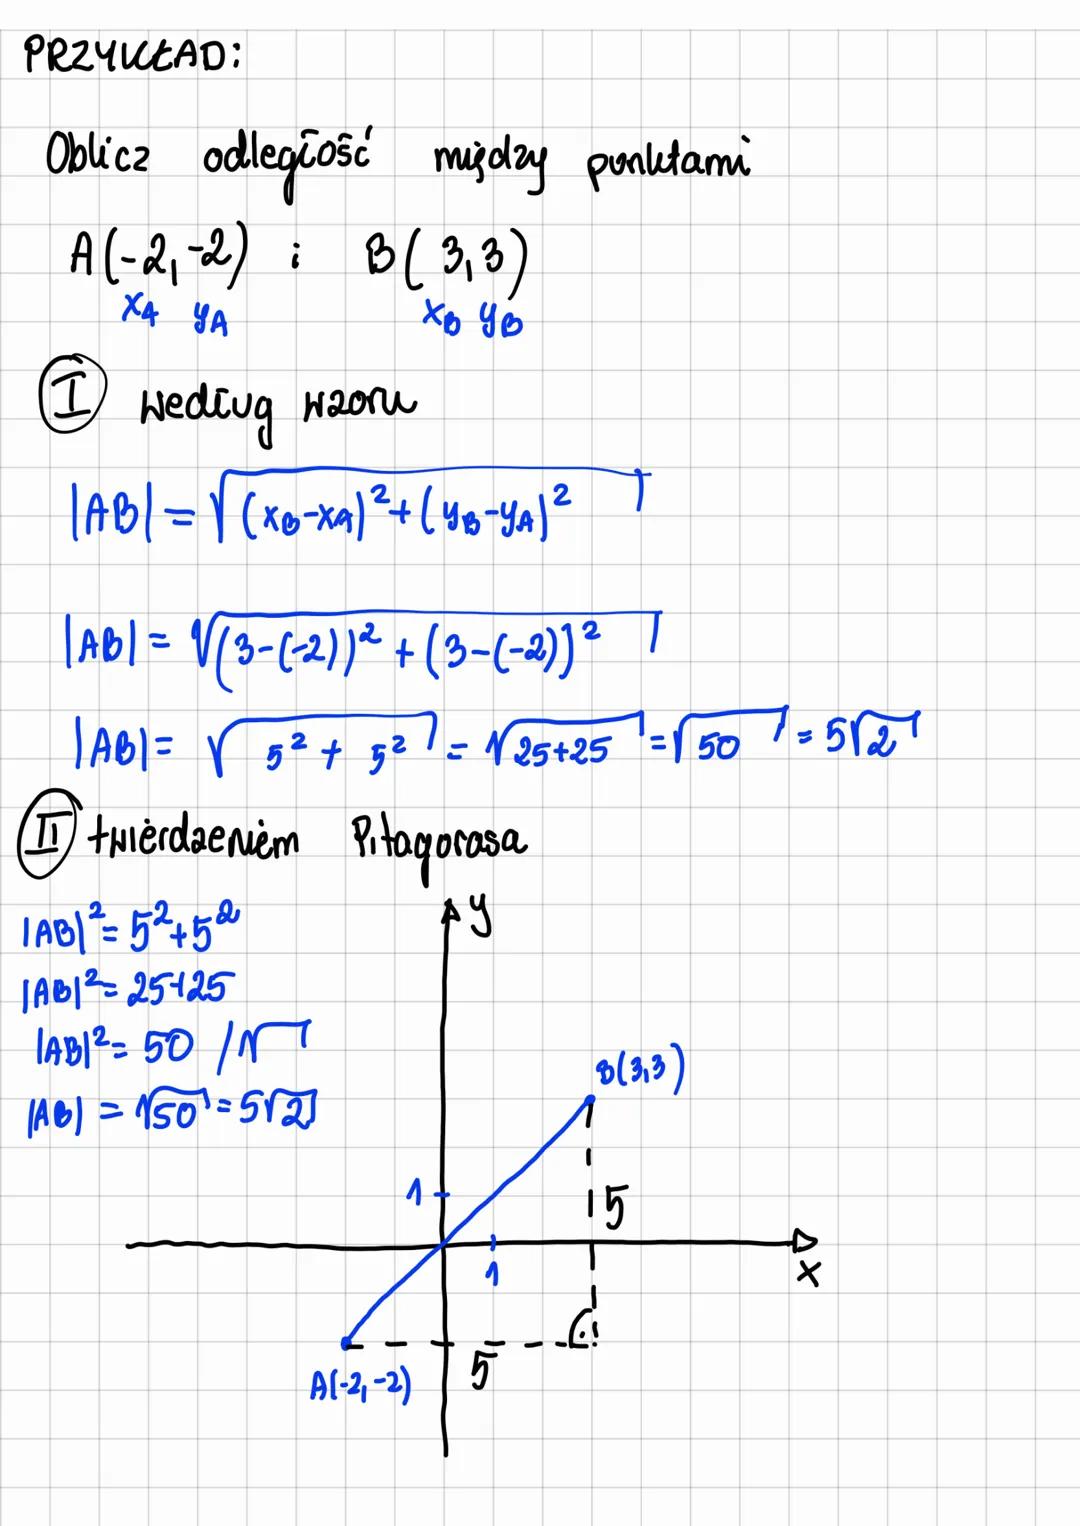 PRZYKŁAD:
Oblicz odległość między punktami
A(-2,-2) i B(3,3)
xA yA xB yB
I według wzoru
|AB| = √(xB-xA)²+(yB-yA)²
|AB| = √(3-(-2))² + (3-(-2))²
|AB| = √5² + 5² = √25+25 = √50 = 5√2
II twierdzeniem Pitagorasa
|AB|² = 5²+5²
|AB|² = 25+25
|AB|² = 50 /√
|AB| = √50 = 5√2
y
B(3,3)
1
5
1
x
5
A(-2,-2)